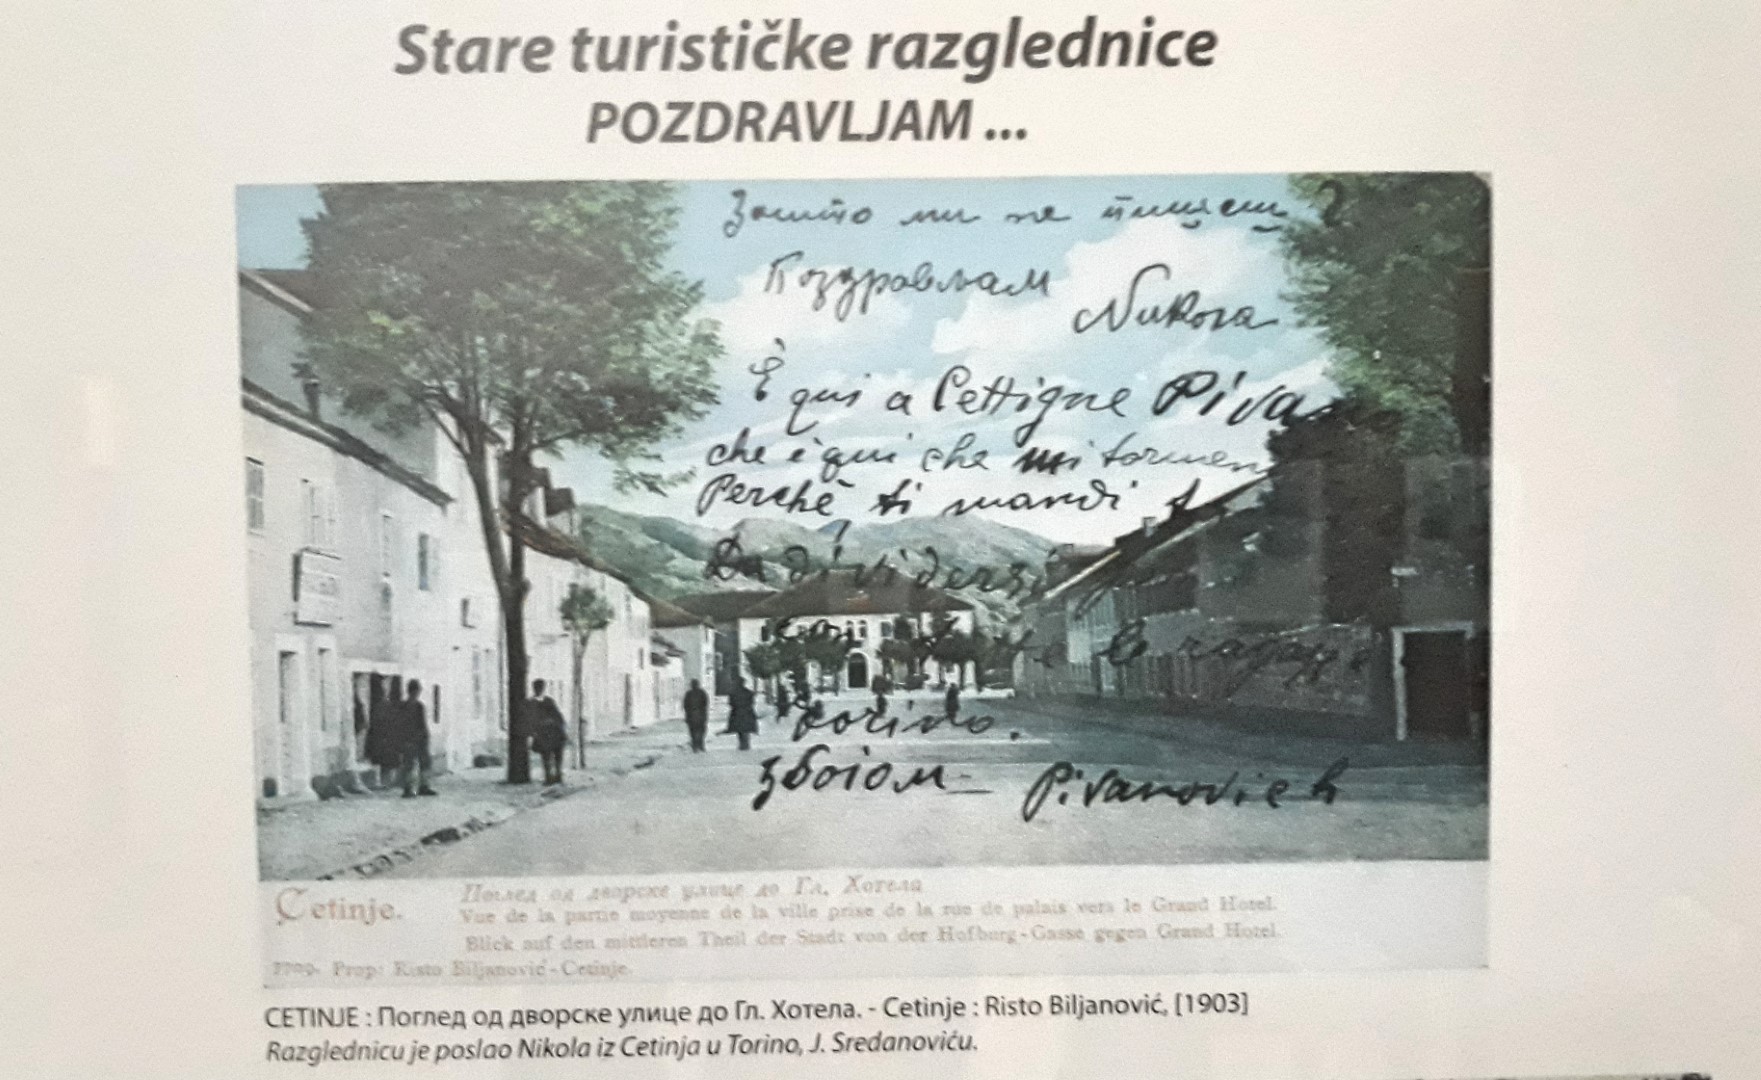 Stare turističke razglednice
POZDRAVLJAM ...
Зашто ми не пишеш ?
Поздрављам
Никола
È qui a Cettigne
che è qui che mi
Perchè ti mandi
Da dividersi
le ragazze
Torino.
збогом - Pivanovich
Cetinje.
Поглед од дворске улице до Гл. Хотела
Vue de la partie moyenne de la ville prise de la rue de palais vers le Grand Hotel.
Blick auf den mittleren Theil der Stadt von der Hofburg-Gasse gegen Grand Hotel.
Prop: Risto Biljanović - Cetinje.
CETINJE : Поглед од дворске улице до Гл. Хотела. - Cetinje : Risto Biljanović, [1903]
Razglednicu je poslao Nikola iz Cetinja u Torino, J. Sredanoviću.